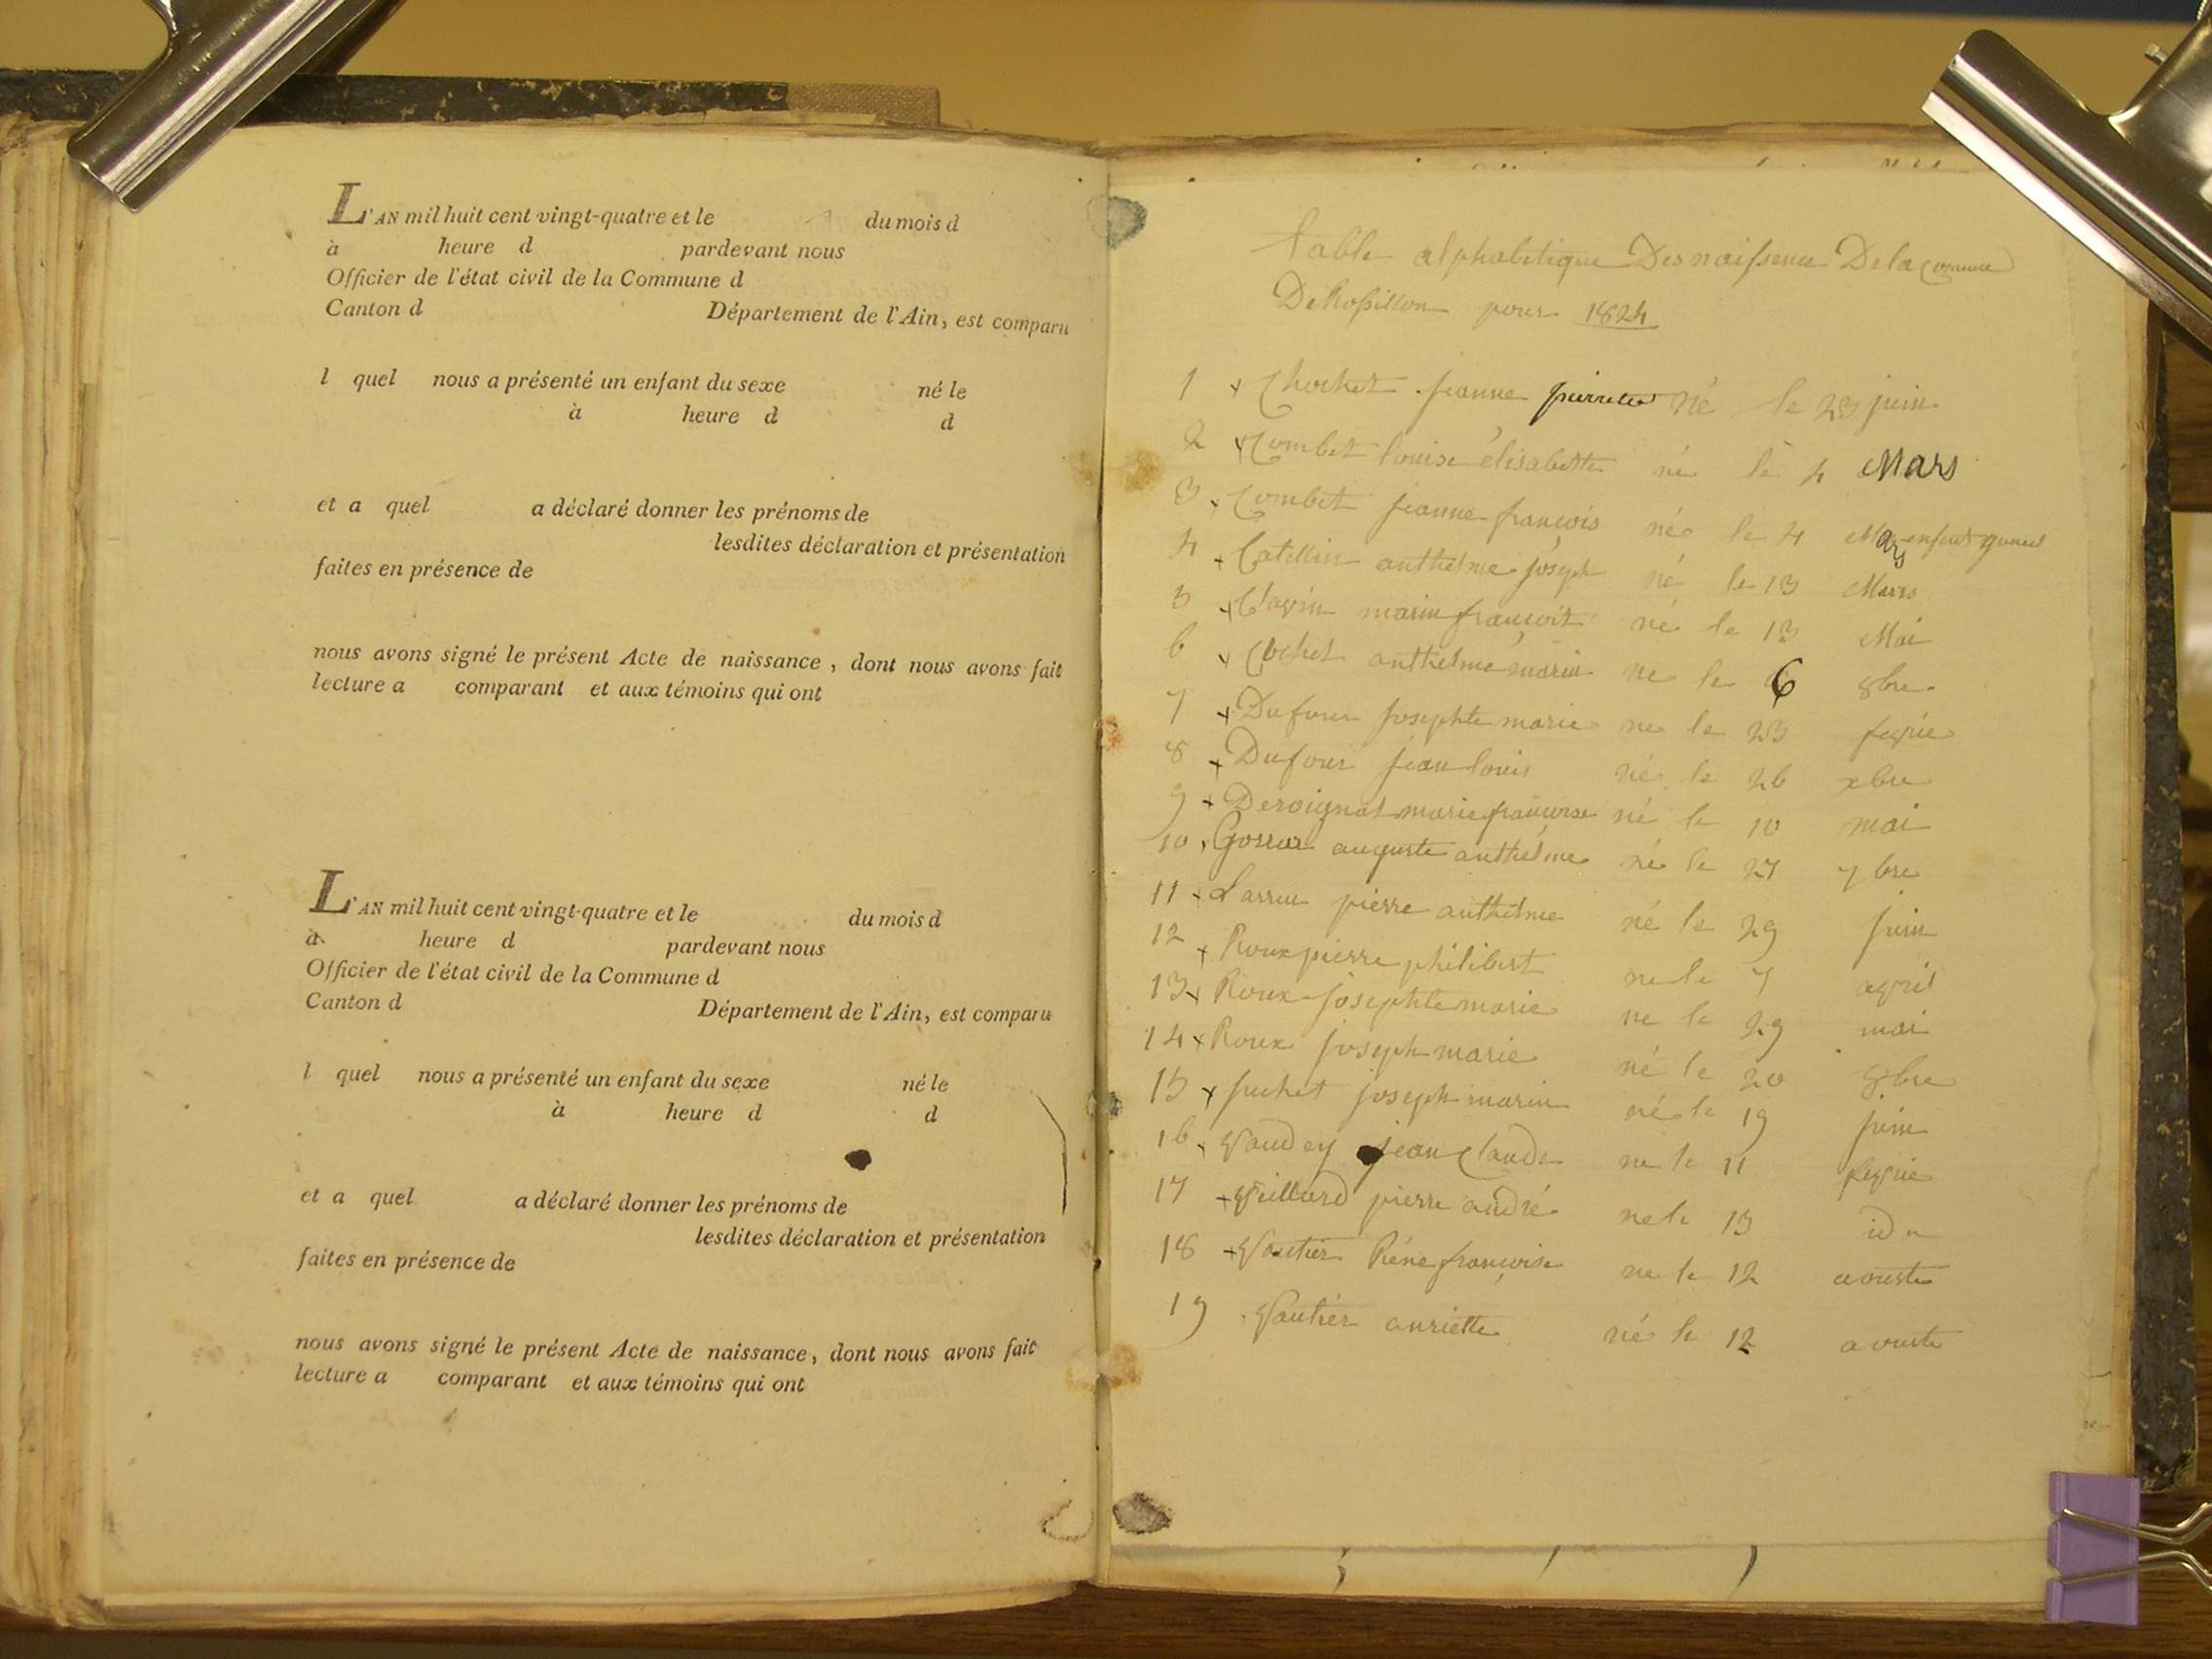 L'AN mil huit cent vingt-quatre et le du mois d
à heure d pardevant nous
Officier de l'état civil de la Commune d
Canton d Département de l'Ain, est comparu
l quel nous a présenté un enfant du sexe né le
à heure d d
et a quel a déclaré donner les prénoms de
lesdites déclaration et présentation
faites en présence de
nous avons signé le présent Acte de naissance, dont nous avons fait
lecture a comparant et aux témoins qui ont
L'AN mil huit cent vingt-quatre et le du mois d
à heure d pardevant nous
Officier de l'état civil de la Commune d
Canton d Département de l'Ain, est comparu
l quel nous a présenté un enfant du sexe né le
à heure d d
et a quel a déclaré donner les prénoms de
lesdites déclaration et présentation
faites en présence de
nous avons signé le présent Acte de naissance, dont nous avons fait
lecture a comparant et aux témoins qui ont
table alphabetique Des naissence De la Commune
De Rossillon pour 1824
1 + Chochet jeanne pierrette né le 23 juin
2 + Combet louise élisabette né le 4 Mars
3 + Combet jeanne françois né le 4 Mars enfant
4 + Catillin anthelme joseph né le 13 Mars
5 + marin françois né le 13 Mai
6 + Cochet anthelme marin ne le 6 8bre
7 + Dufour josephte marie ne le 23
8 + Dufour jean louis né le 26 xbre
9 + Deroignat marie françoise né le 10 mai
10 + auguste anthelme né le 27 7bre
11 + pierre anthelme né le 29 juin
12 + Roux pierre philibert ne le 7 avril
13 + Roux josephte marie ne le 29 mai
14 + Roux joseph marie né le 20 8bre
15 + joseph marin né le 19 juin
16 + Vaudey jean Claude ne le 11
17 + Veillard pierre andré ne le 13 id
18 + Vautier Réne françoise ne le 12 aouste
19 Vautier anriette né le 12 aouste